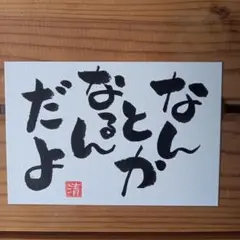 なんとか
なるん
だよ
清